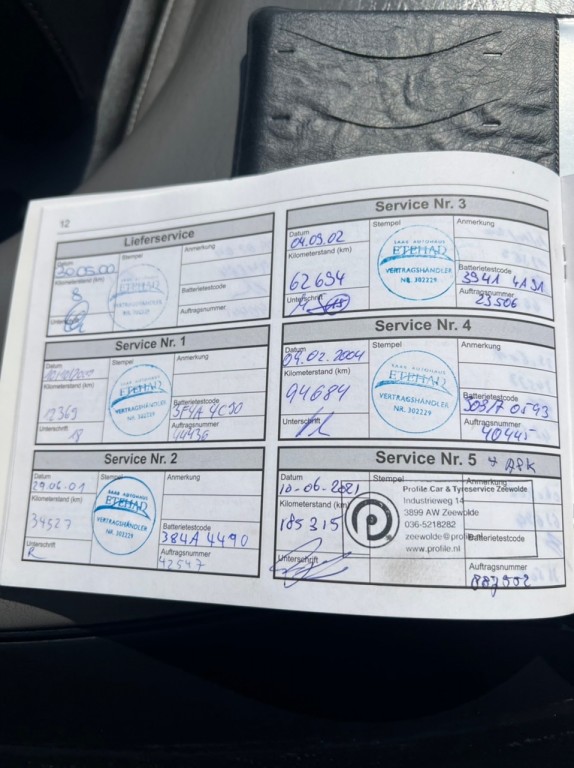 12
Lieferservice
Datum
30.05.00
Kilometerstand (km)
8
Stempel
SAAB AUTOHAUS
ETEHAD
VERTRAGSHÄNDLER
NR. 302229
Anmerkung
Batterietestcode
Auftragsnummer
Service Nr. 1
Datum
Kilometerstand (km)
Unterschrift
Stempel
SAAB AUTOHAUS
ETEHAD
VERTRAGSHÄNDLER
NR. 302229
Anmerkung
Batterietestcode
Auftragsnummer
Service Nr. 2
Datum
29.06.01
Kilometerstand (km)
34527
Unterschrift
SAAB AUTOHAUS
ETEHAD
VERTRAGSHÄNDLER
NR. 302229
Anmerkung
Batterietestcode
384A 4490
Auftragsnummer
42547
Service Nr. 3
Datum
04.09.02
Kilometerstand (km)
62694
Unterschrift
Stempel
SAAB AUTOHAUS
ETEHAD
VERTRAGSHÄNDLER
NR. 302229
Anmerkung
Batterietestcode
394A 4A91
Auftragsnummer
23506
Service Nr. 4
Datum
09.02.2004
Kilometerstand (km)
94684
Unterschrift
Stempel
SAAB AUTOHAUS
ETEHAD
VERTRAGSHÄNDLER
NR. 302229
Anmerkung
Batterietestcode
Auftragsnummer
40445
Service Nr. 5 + APK
Datum
10-06-2021
Kilometerstand (km)
185315
Unterschrift
Stempel
Anmerkung
Profile Car & Tyreservice Zeewolde
Industrieweg 14
3899 AW Zeewolde
036-5218282
zeewolde@profile.nl
www.profile.nl
Batterietestcode
Auftragsnummer